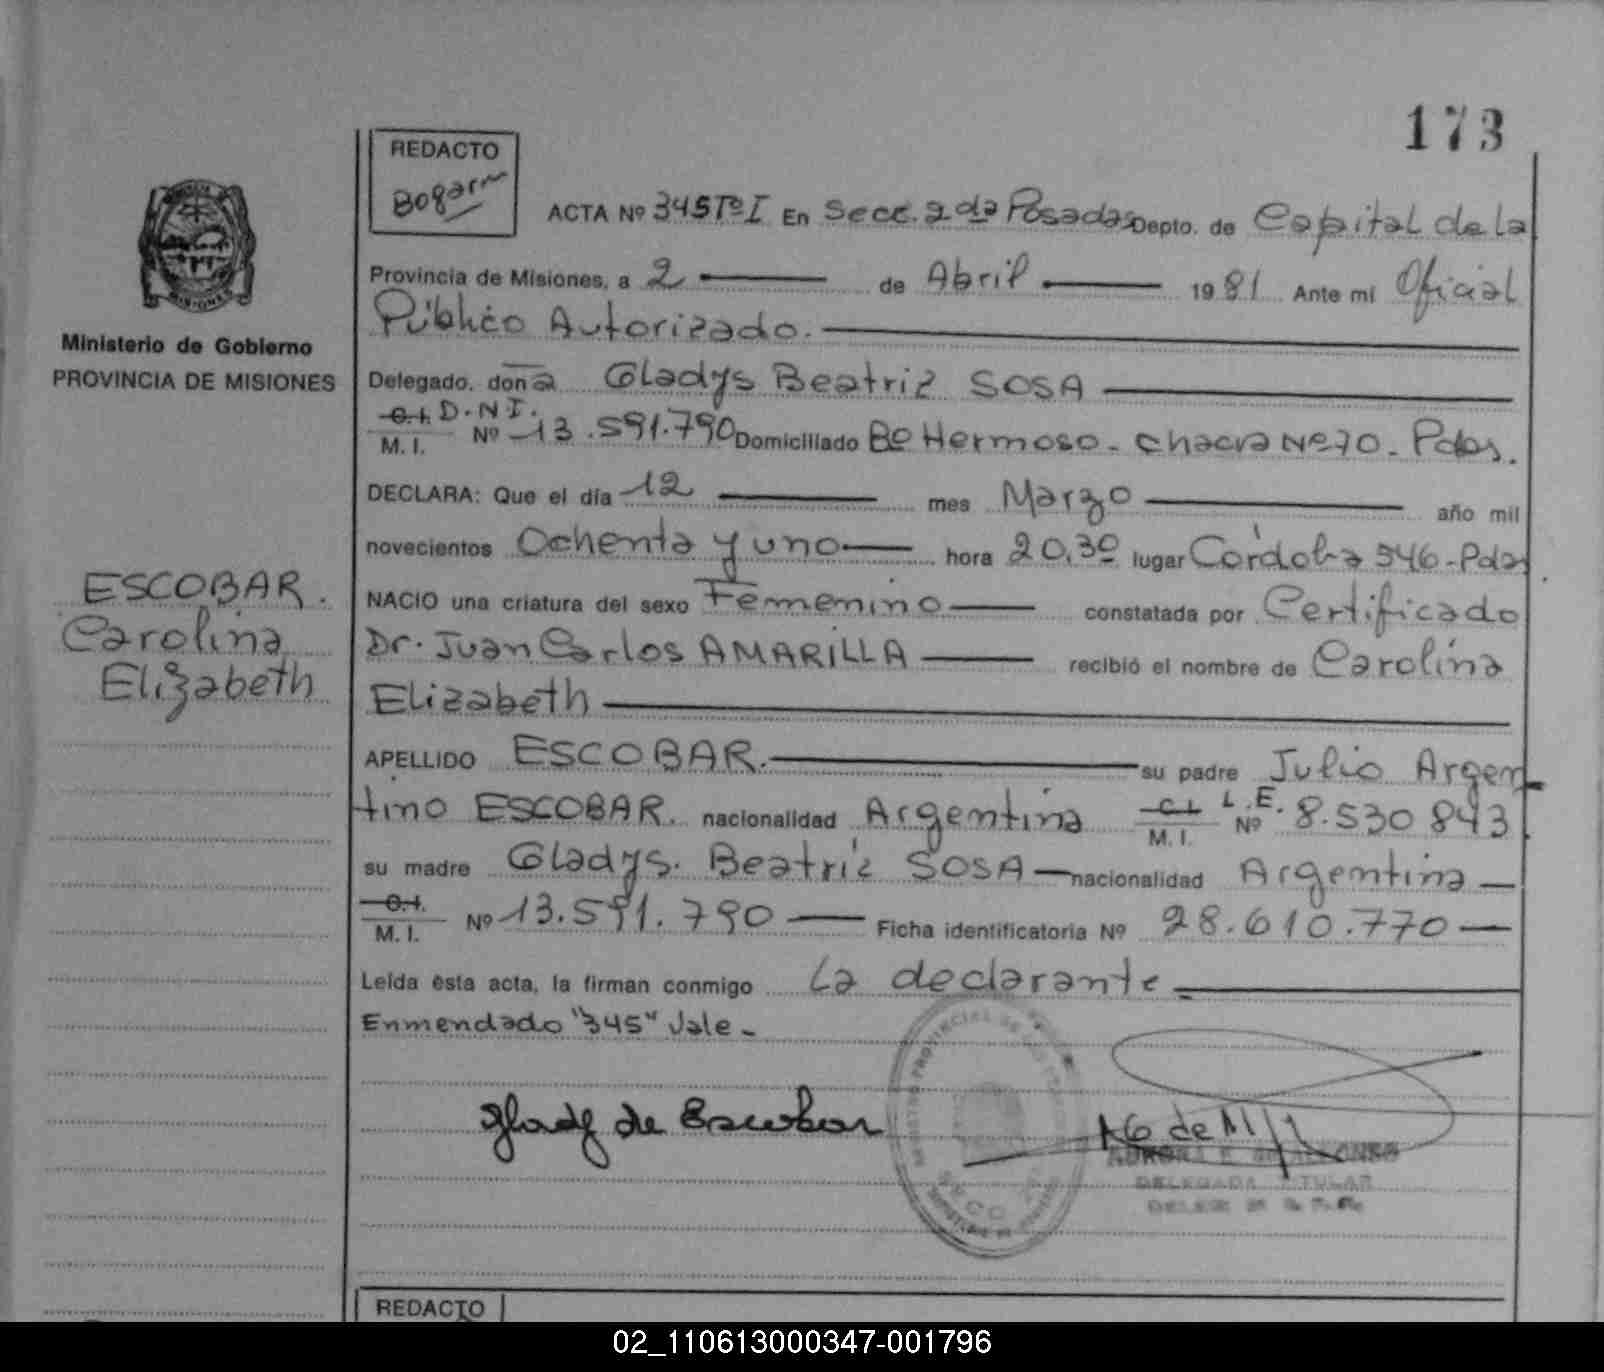 173
REDACTO
Bogarin
ACTA Nº 345 Tº I En Secc. 2 da Posadas Depto. de Capital de la
Provincia de Misiones, a 2 de Abril 1981 Ante mi Oficial
Público Autorizado.
MISIONES
Ministerio de Gobierno
PROVINCIA DE MISIONES
Delegado, doña Gladys Beatriz SOSA
C.I. D.N.I.
M.I. Nº 13.591.790 Domiciliado Bº Hermoso - chacra Nº 70 - Pdas.
DECLARA: Que el día 12 mes Marzo año mil
novecientos Ochenta y uno hora 20,30 lugar Córdoba 546 - Pdas
ESCOBAR.
Carolina
Elizabeth
NACIO una criatura del sexo Femenino constatada por Certificado
Dr. Juan Carlos AMARILLA recibió el nombre de Carolina
Elizabeth
APELLIDO ESCOBAR. su padre Julio Argen
tino ESCOBAR. nacionalidad Argentina C.I. M.I. L.E. Nº 8.530 843
su madre Gladys. Beatriz SOSA nacionalidad Argentina
C.I. M.I. Nº 13.591.790 Ficha identificatoria Nº 28.610.770
Leída esta acta, la firman conmigo La declarante
Enmendado "345" Vale -
Glady de Escobar
DELEGADA TITULAR
REDACTO
02_110613000347-001796